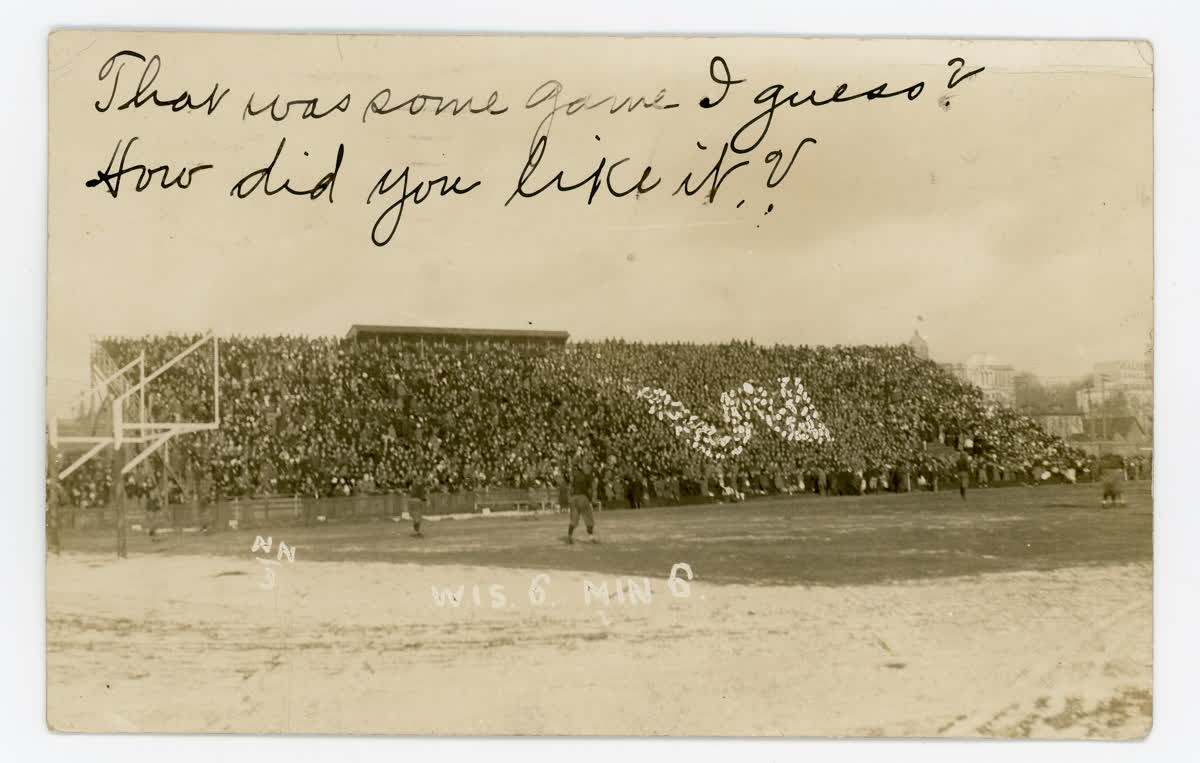 That was some game I guess?
How did you like it??
W
NN
3
WIS. 6. MIN 6.